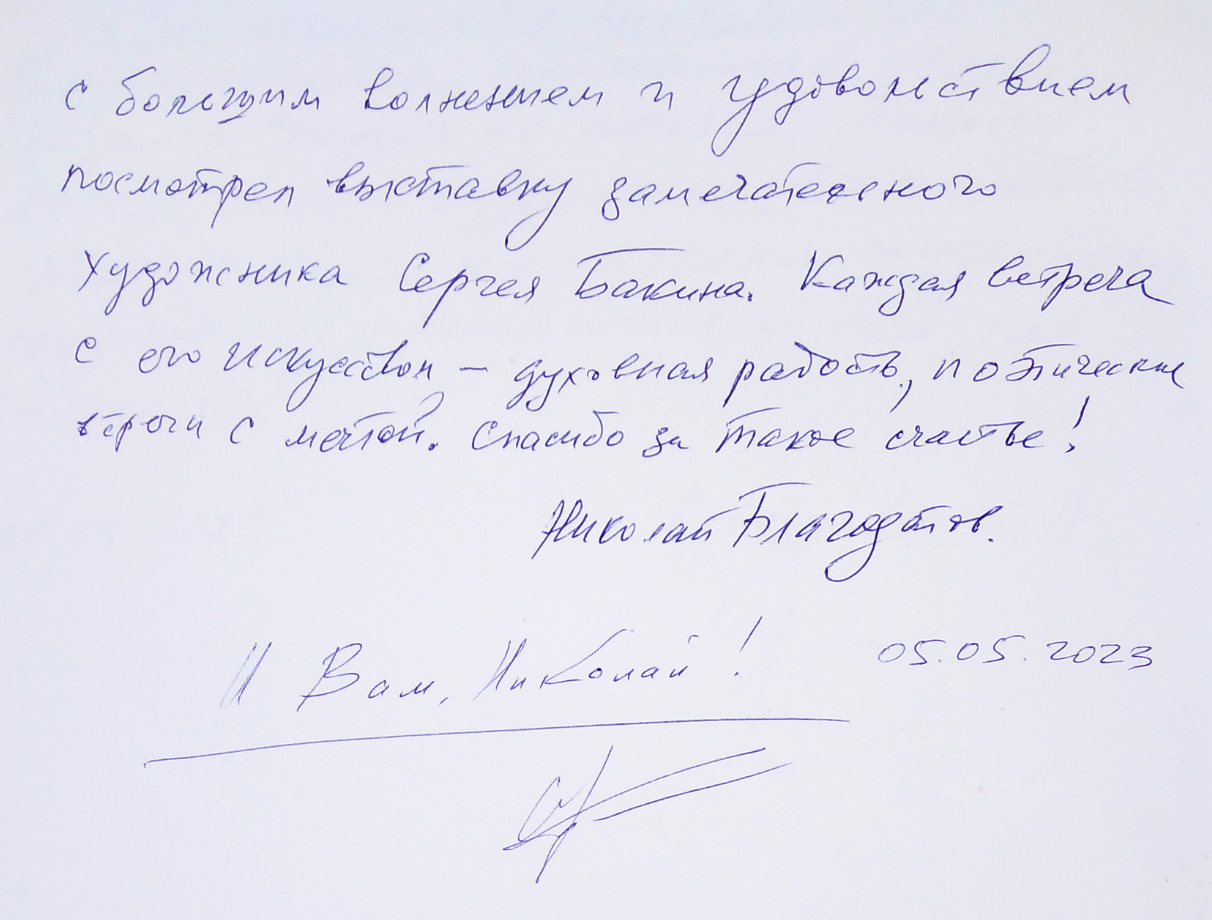 с большим волнением и удовольствием
посмотрел выставку замечательного
художника Сергея Бакина. Каждая встреча
с его искусством — духовная радость, поэтические
встречи с мечтой. Спасибо за такое счастье!
Николай Благодатов.
И Вам, Николай!
05.05.2023